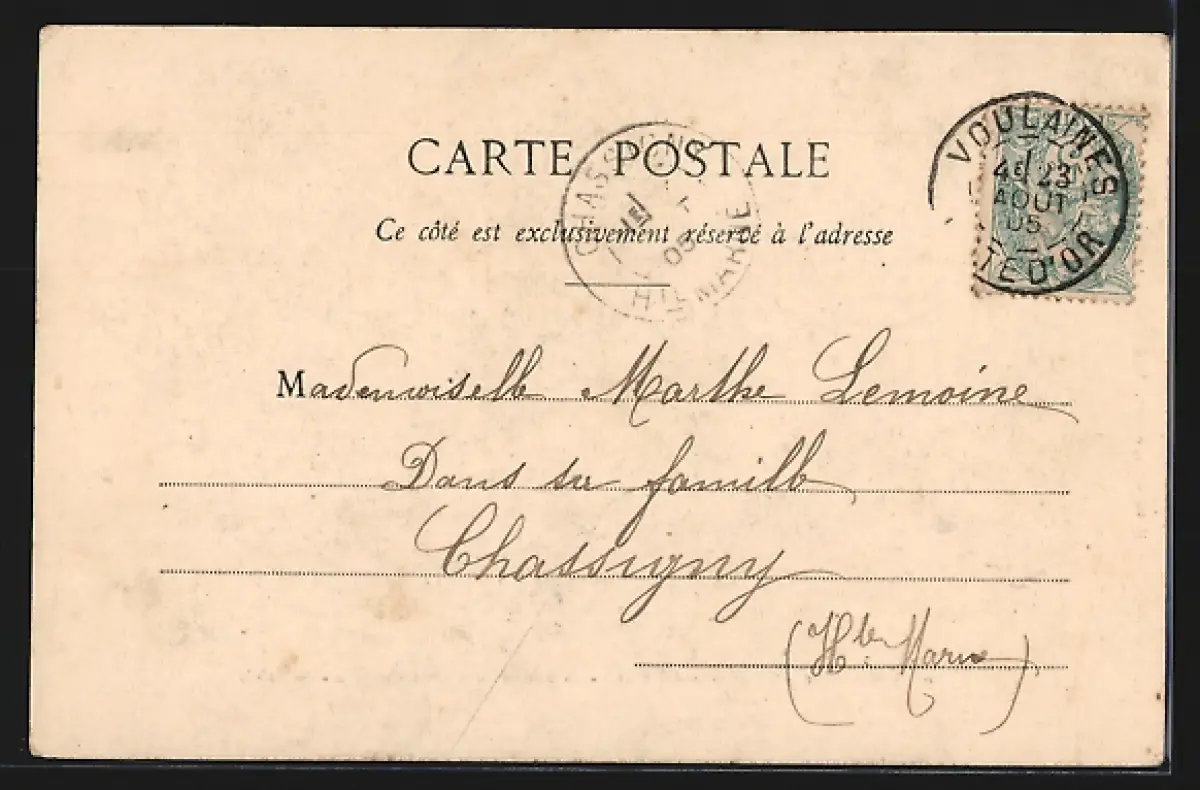 CARTE POSTALE
Ce côté est exclusivement réservé à l'adresse
VOULAINES
4E 23
AOUT
05
TE D'OR
CHASS
05
HTE MARNE
Mademoiselle Marthe Lemoine
Dans sa famille
Chassigny
(Hte Marne)